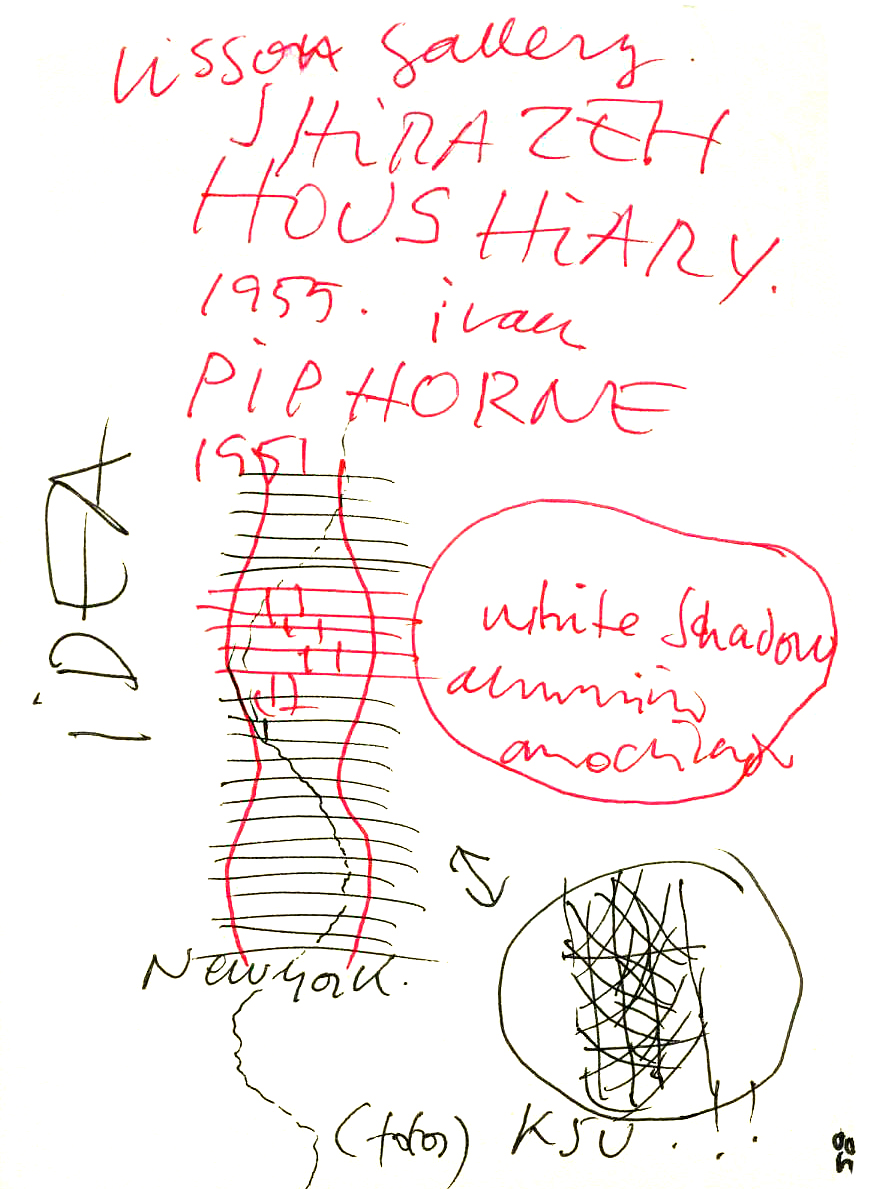 Lisson gallery.
SHiRAZEH
HOUSHiARY.
1955. iran
PiP HORNE
1951
iDEA
white Shadow
aluminio
anodizado
New york.
(fotos) KSU . !!